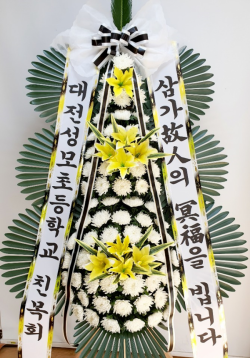 삼가故人의 冥福을 빕니다
대전성모초등학교 친목회